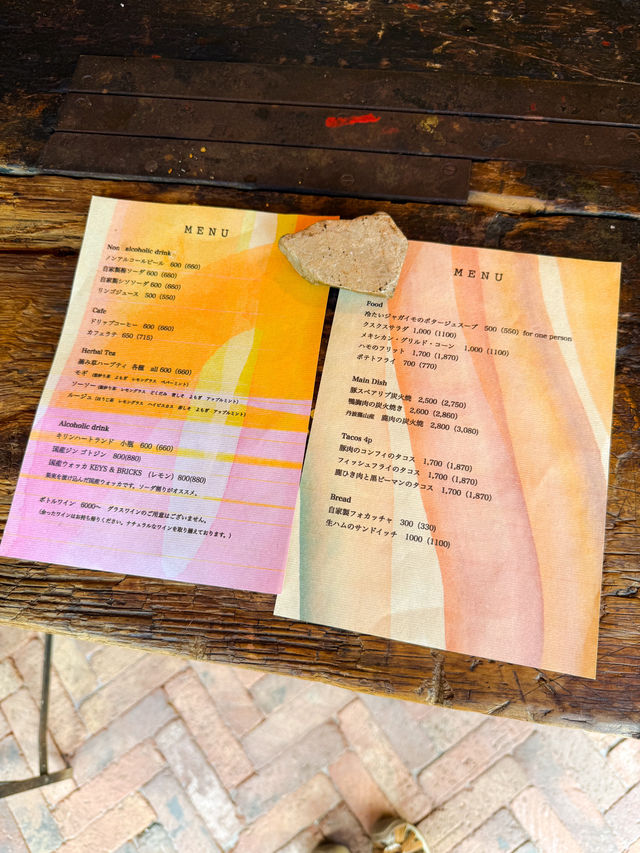 MENU
Non alcoholic drink
ノンアルコールビール 600 (660)
自家製梅ソーダ 600 (660)
自家製シソソーダ 600 (660)
リンゴジュース 500 (550)
Cafe
ドリップコーヒー 600 (660)
カフェラテ 650 (715)
Herbal Tea
摘み草ハーブティ 各種 all 600 (660)
モギ (釜炒り茶 よもぎ レモングラス ペパーミント)
ソーソー (釜炒り茶 レモングラス どくだみ 青しそ よもぎ アップルミント)
ルージュ (ほうじ茶 レモングラス ハイビスカス 赤しそ よもぎ アップルミント)
Alcoholic drink
キリンハートランド 小瓶 600 (660)
国産ジン ゴトジン 800(880)
国産ウォッカ KEYS & BRICKS (レモン) 800(880)
果実を漬け込んだ国産ウォッカです。ソーダ割りがオススメ。
ボトルワイン 6000〜 グラスワインのご用意はございません。
(余ったワインはお持ち帰りください。ナチュラルなワインを取り揃えております。)
MENU
Food
冷たいジャガイモのポタージュスープ 500 (550) for one person
クスクスサラダ 1,000 (1100)
メキシカン・グリルド・コーン 1,000 (1100)
ハモのフリット 1,700 (1,870)
ポテトフライ 700 (770)
Main Dish
豚スペアリブ炭火焼 2,500 (2,750)
鴨胸肉の炭火焼き 2,600 (2,860)
丹波篠山産 鹿肉の炭火焼 2,800 (3,080)
Tacos 4p
豚肉のコンフィのタコス 1,700 (1,870)
フィッシュフライのタコス 1,700 (1,870)
鹿ひき肉と黒ピーマンのタコス 1,700 (1,870)
Bread
自家製フォカッチャ 300 (330)
生ハムのサンドイッチ 1000 (1100)